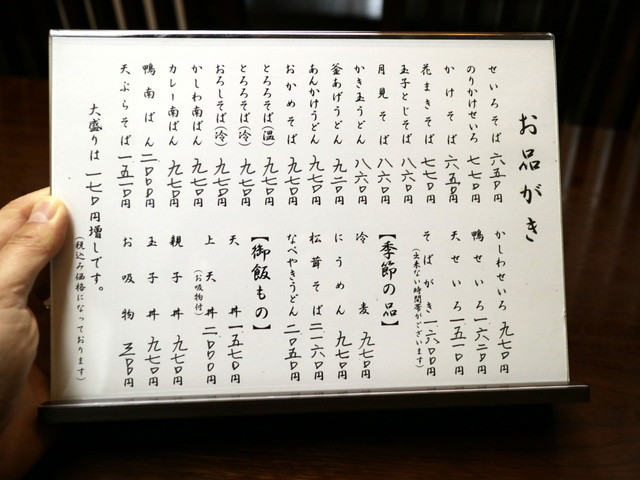 お品がき
せいろそば 六五〇円
のりかけせいろ 七七〇円
かけそば 六五〇円
花まきそば 七七〇円
玉子とじそば 八六〇円
月見そば 八六〇円
かき玉うどん 八六〇円
釜あげうどん 九二〇円
あんかけうどん 九七〇円
おかめそば 九七〇円
とろろそば(温) 九七〇円
とろろそば(冷) 九七〇円
おろしそば(冷) 九七〇円
かしわ南ばん 九七〇円
カレー南ばん 九七〇円
鴨南ばん 二〇〇〇円
天ぷらそば 一五一〇円
大盛りは一七〇円増しです。
かしわせいろ 九七〇円
鴨せいろ 一六二〇円
天せいろ 一五一〇円
そばがき 一六〇〇円
(出来ない時間帯がございます)
【季節の品】
冷麦 九七〇円
にうめん 九七〇円
松茸そば 二一六〇円
なべやきうどん 二〇五〇円
【御飯もの】
天丼 一五七〇円
上天丼 二〇〇〇円
(お吸物付)
親子丼 九七〇円
玉子丼 九七〇円
お吸物 三〇〇円
(税込み価格になっております)